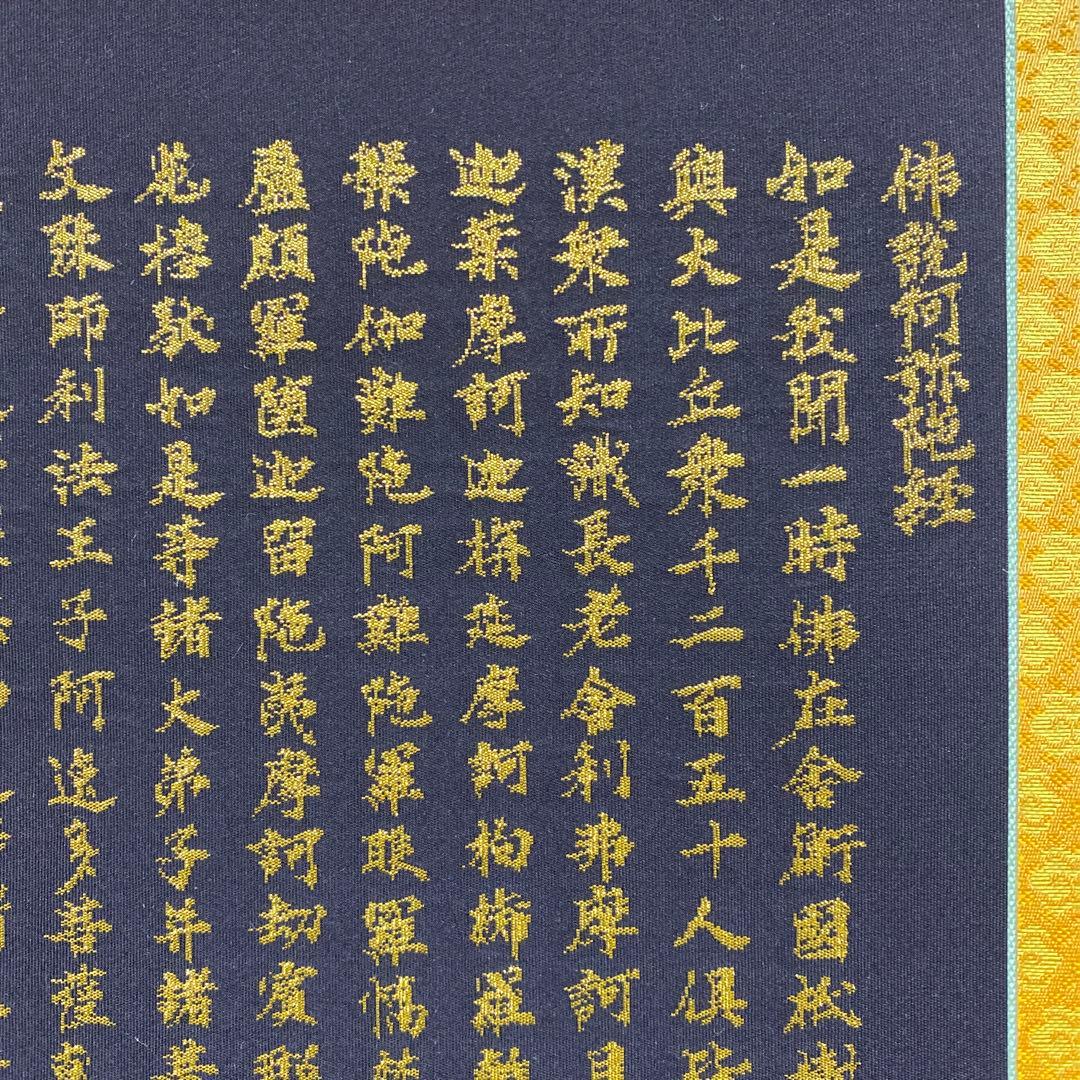 佛說阿弥陀経
如是我聞一時佛在舍衛國祇樹
與大比丘衆千二百五十人俱皆
漢衆所知識長老舍利弗摩訶目
迦葉摩訶迦栴延摩訶拘絺羅離
槃陀伽難陀阿難陀羅睺羅憍梵
盧頗羅墮迦留陀夷摩訶劫賓那
菟樓馱如是等諸大弟子并諸菩
文殊師利法王子阿逸多菩薩